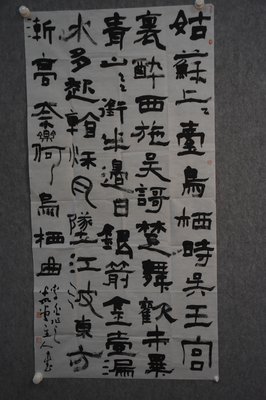 姑蘇上臺烏栖時吳王宮
裏醉西施吳謌楚舞歡未畢
青山銜半邊日銀箭金壺漏
水多起看秌月墜江波東方
漸高奈樂何烏栖曲
主人